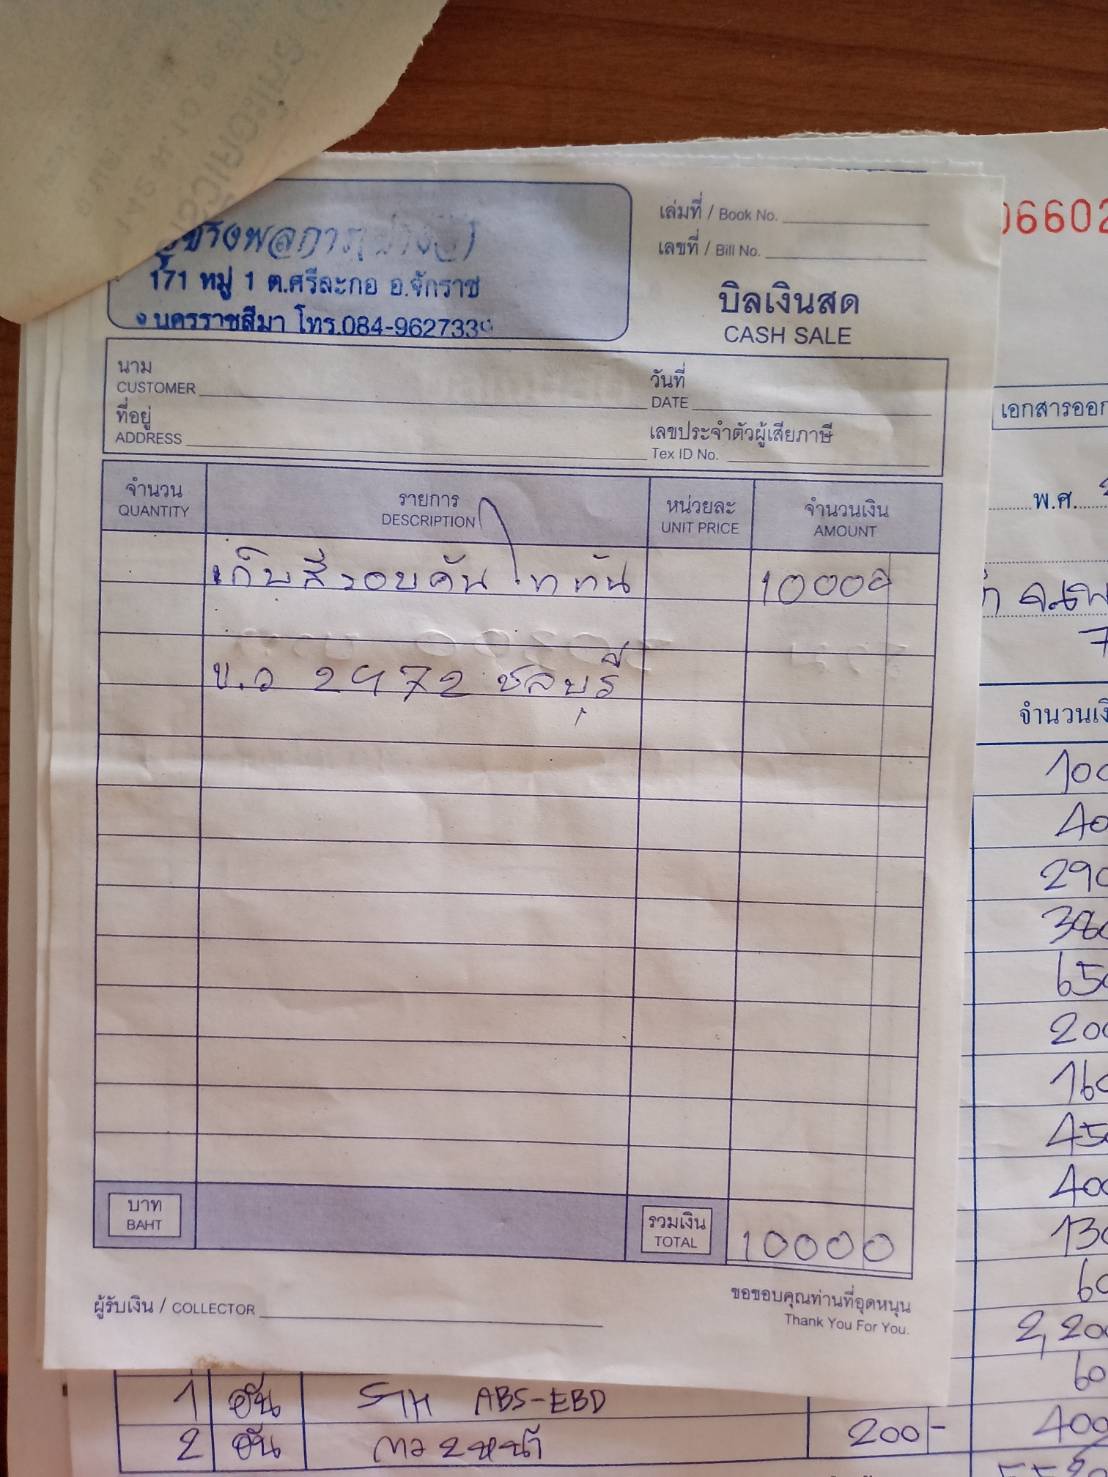 171 หมู่ 1 ต.ศรีละกอ อ.จักราช
จ.นครราชสีมา โทร.084-9627339
เล่มที่ / Book No.
เลขที่ / Bill No.
บิลเงินสด
CASH SALE
นาม
CUSTOMER
วันที่
DATE
ที่อยู่
ADDRESS
เลขประจำตัวผู้เสียภาษี
Tex ID No.
จำนวน รายการ หน่วยละ จำนวนเงิน
QUANTITY DESCRIPTION UNIT PRICE AMOUNT
เก็บสีรอบคัน ไททัน 10000
ข.ว 2972 ชลบุรี
บาท
BAHT
รวมเงิน
TOTAL
10000
ผู้รับเงิน / COLLECTOR
ขอขอบคุณท่านที่อุดหนุน
Thank You For You.
06602
เอกสารออก
พ.ศ.
จำนวนเงิ
100
40
290
380
650
200
160
450
400
130
60
2,200
60
1 อัน ABS-EBD 400
2 อัน 200-